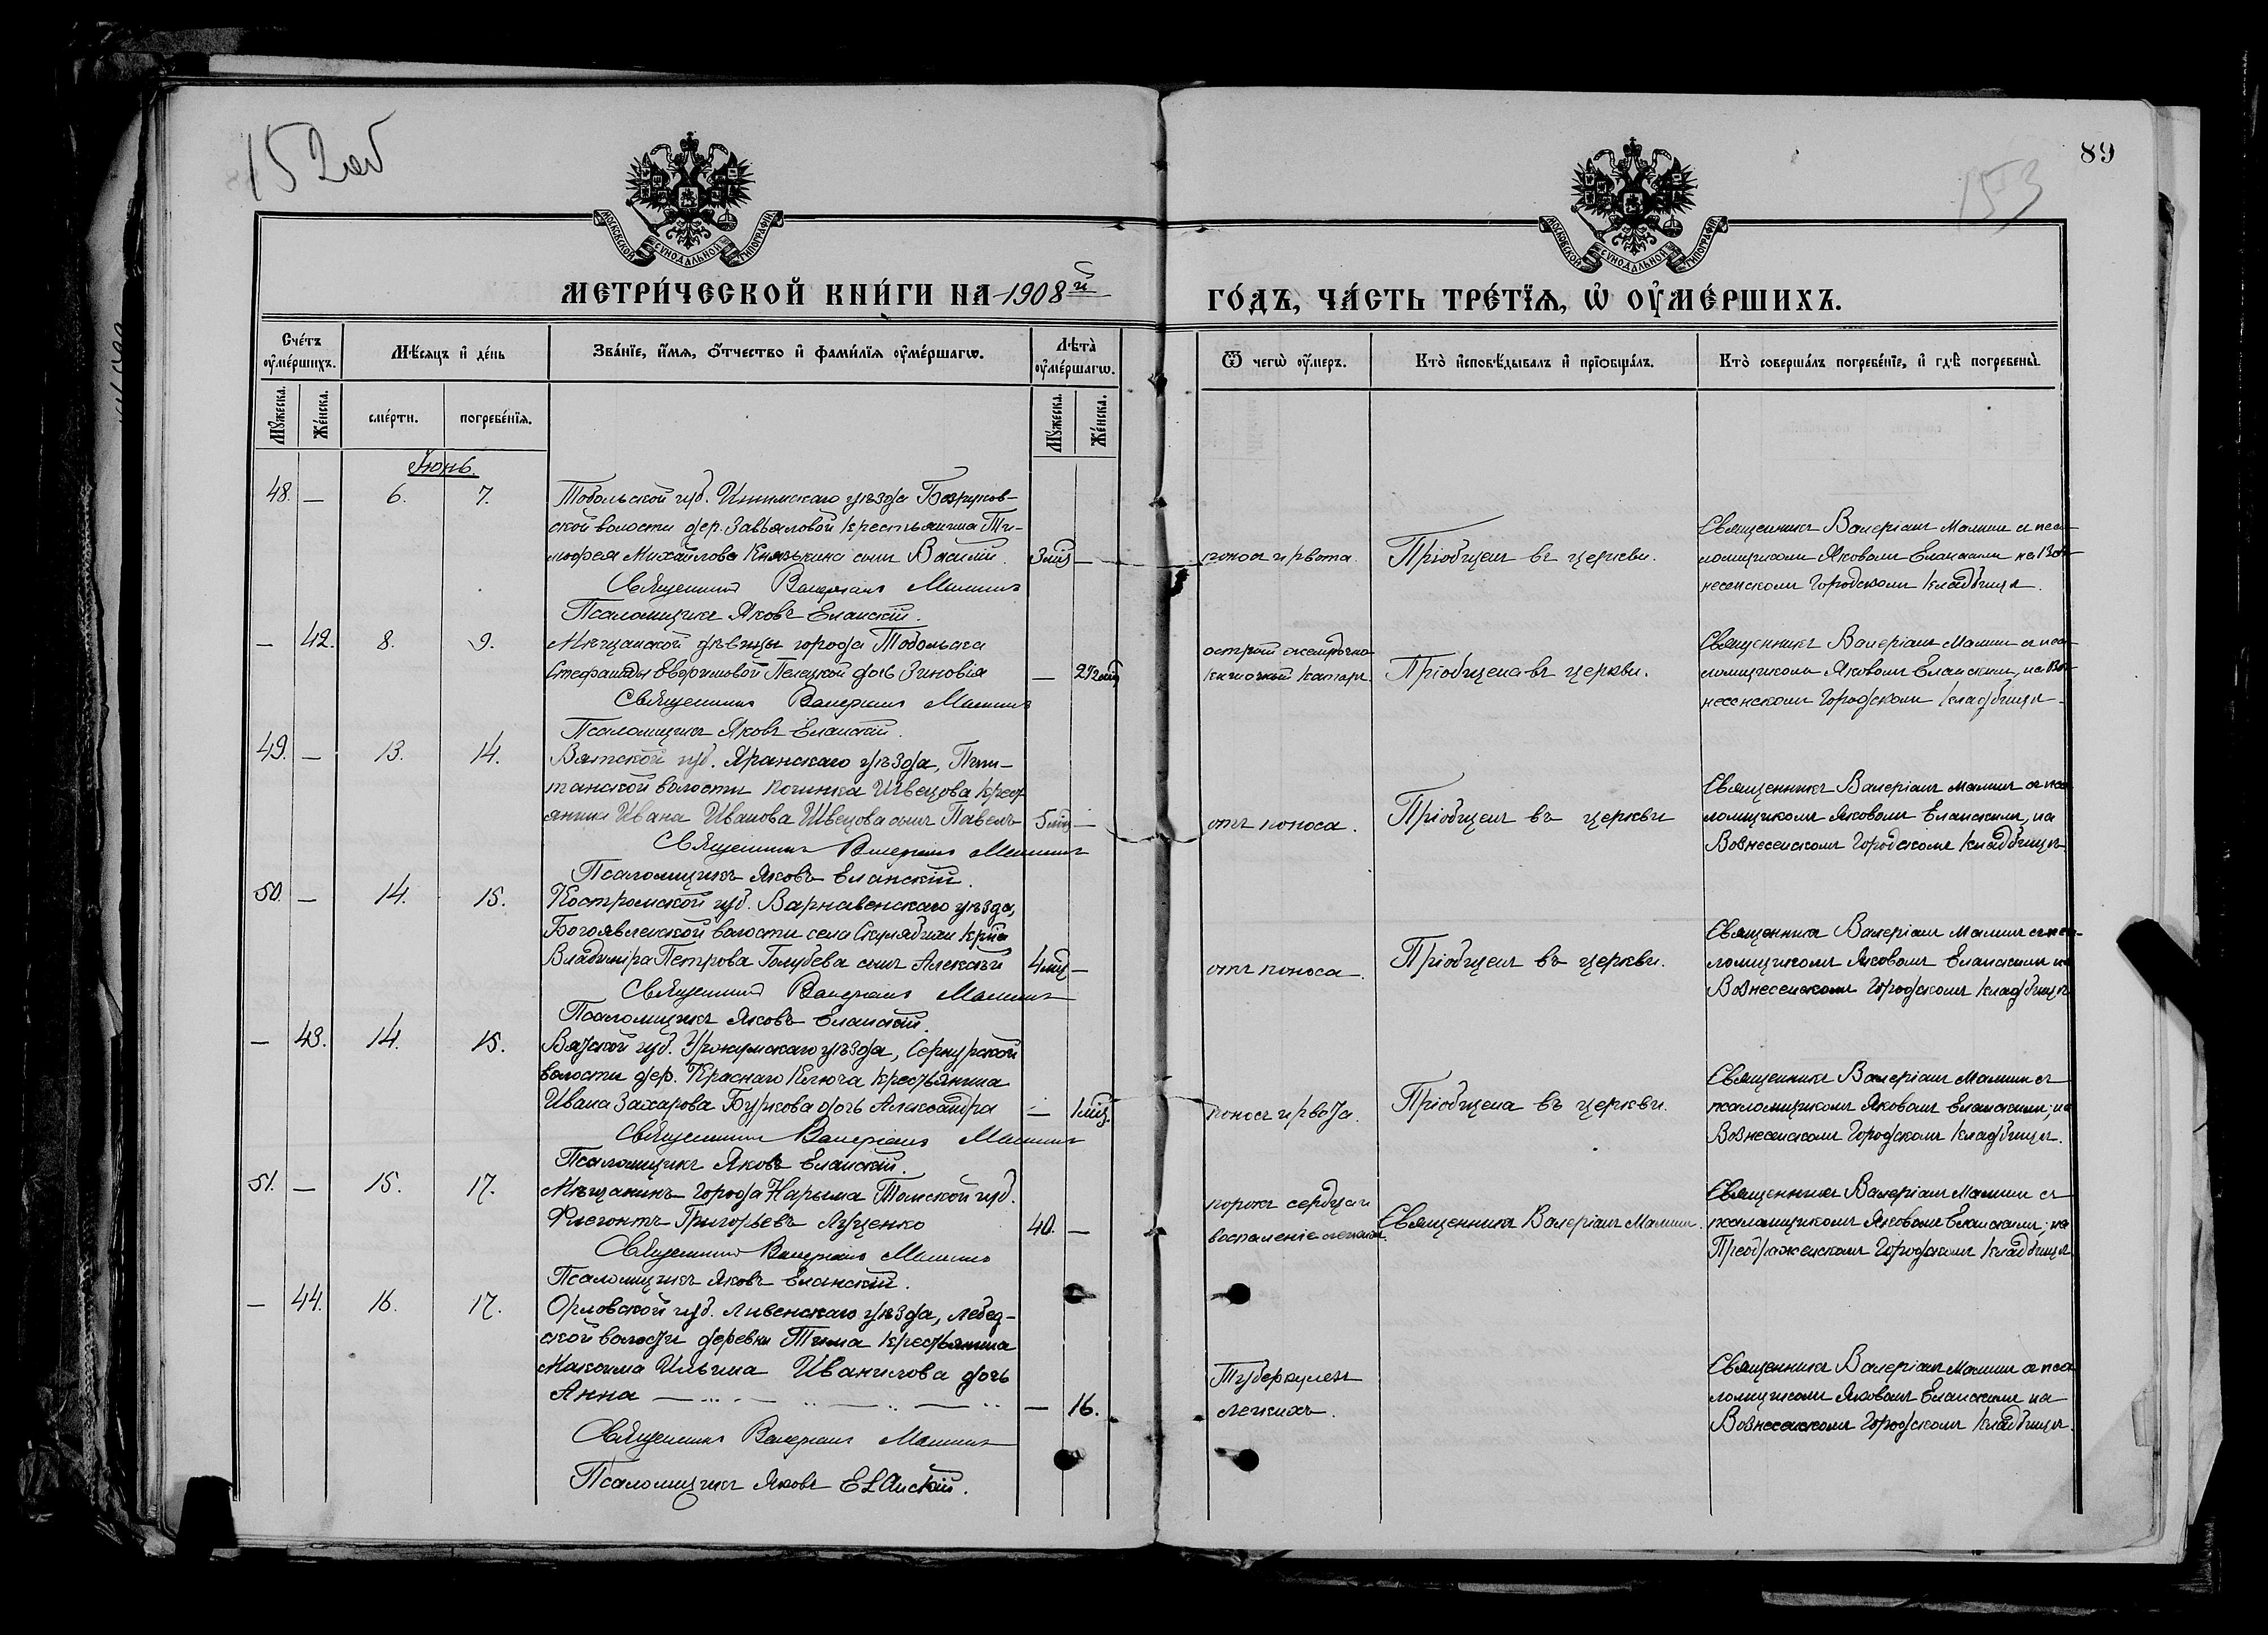 152об
89
153
МОСКОВСКОЙ СУНОДАЛЬНОЙ ТИПОГРАФІИ
МОСКОВСКОЙ СУНОДАЛЬНОЙ ТИПОГРАФІИ
МЕТРИ́ЧЕСКОЙ КНИ́ГИ НА 1908й
ГО́ДЪ, ЧА́СТЬ ТРЕ́ТЇѦ, Ѡ҆ ОУ҆МЕ́РШИХЪ.
Сче́тъ оу҆ме́ршихъ.
Мꙋ́жеска.
Же́нска.
Мѣ́сяцъ и҆ де́нь
сме́рти.
погребе́нїѧ.
Зва́нїе, и҆́мѧ, ѻ҆́тчество и҆ фами́лїѧ оу҆ме́ршагѡ.
Лѣ́та оу҆ме́ршагѡ.
Мꙋ́жеска.
Же́нска.
Ѿ чегѡ̀ оу҆́меръ.
Кто̀ и҆сповѣ́дывалъ и҆ прїѡбща́лъ.
Кто̀ соверша́лъ погребе́нїе, и҆ гдѣ̀ погребены̀.
Іюнь.
48. — 6. 7.
Тобольской губ. Ишимскаго уѣзда Безруков-
ской волости дер. Завьяловой крестьянина Ти-
мофея Михайлова Князькина сынъ Василій. 3 мѣс —
Священникъ Валеріанъ Мамин
Псаломщикъ Яковъ Еланскій.
поносъ и рвота
Пріобщенъ въ церкви.
Священникъ Валеріанъ Мамин съ пса-
ломщикомъ Яковомъ Еланскимъ на Воз-
несенскомъ Городскомъ кладбищѣ.
— 42. 8. 9.
Мѣщанской дѣвицы города Тобольска
Стефаниды Пелецкой дочь Зиновія —
Священникъ Валеріанъ Мамин
Псаломщикъ Яковъ Еланскій.
острый желудочно-
кишечный катаръ
Пріобщена въ церкви.
Священникъ Валеріанъ Мамин съ пса-
ломщикомъ Яковомъ Еланскимъ, на Воз-
несенскомъ Городскомъ кладбищѣ.
49. — 13. 14.
Вятской губ. Яранскаго уѣзда,
волости починка Швецова крест-
янина Ивана Иванова Швецова сынъ Павелъ 5 мѣс —
Священникъ Валеріанъ Мамин
Псаломщикъ Яковъ Еланскій.
отъ поноса.
Пріобщенъ въ церкви
Священникъ Валеріанъ Мамин съ пса-
ломщикомъ Яковомъ Еланскимъ, на
Вознесенскомъ Городскомъ кладбищѣ
50. — 14. 15.
Костромской губ. Варнавенскаго уѣзда,
Богоявленской волости села Скулябихи кр-на
Владиміра Петрова Голубева сынъ Алексѣй 4 мѣс —
Священникъ Валеріанъ Мамин
Псаломщикъ Яковъ Еланскій.
отъ поноса.
Пріобщенъ въ церкви.
Священникъ Валеріанъ Мамин съ пса-
ломщикомъ Яковомъ Еланскимъ на
Вознесенскомъ Городскомъ кладбищѣ
— 43. 14. 15.
Вятской губ. Уржумскаго уѣзда, Сернурской
волости дер. Краснаго Ключа крестьянина
Ивана Захарова Буркова дочь Александра — 1 мѣс.
Священникъ Валеріанъ Мамин
Псаломщикъ Яковъ Еланскій.
поносъ и рвота.
Пріобщена въ церкви.
Священникъ Валеріанъ Мамин съ
псаломщикомъ Яковомъ Еланскимъ; на
Вознесенскомъ Городскомъ кладбищѣ.
51. — 15. 17.
Мѣщанинъ города Нарыма Томской губ.
Флегонтъ Григорьевъ Луценко 40. —
Священникъ Валеріанъ Мамин
Псаломщикъ Яковъ Еланскій.
порокъ сердца и
воспаленіе легкихъ.
Священникъ Валеріанъ Мамин.
Священникъ Валеріанъ Мамин съ
псаломщикомъ Яковомъ Еланскимъ; на
Преображенскомъ Городскомъ кладбищѣ
— 44. 16. 17.
Орловской губ. Ливенскаго уѣзда,
ской волости деревни Тима крестьянина
Максима Ильина Иванилова дочь
Анна — 16.
Священникъ Валеріанъ Мамин
Псаломщикъ Яковъ Еланскій.
Туберкулезъ
легкихъ.
Священникъ Валеріанъ Мамин съ пса-
ломщикомъ Яковомъ Еланскимъ на
Вознесенскомъ Городскомъ кладбищѣ.